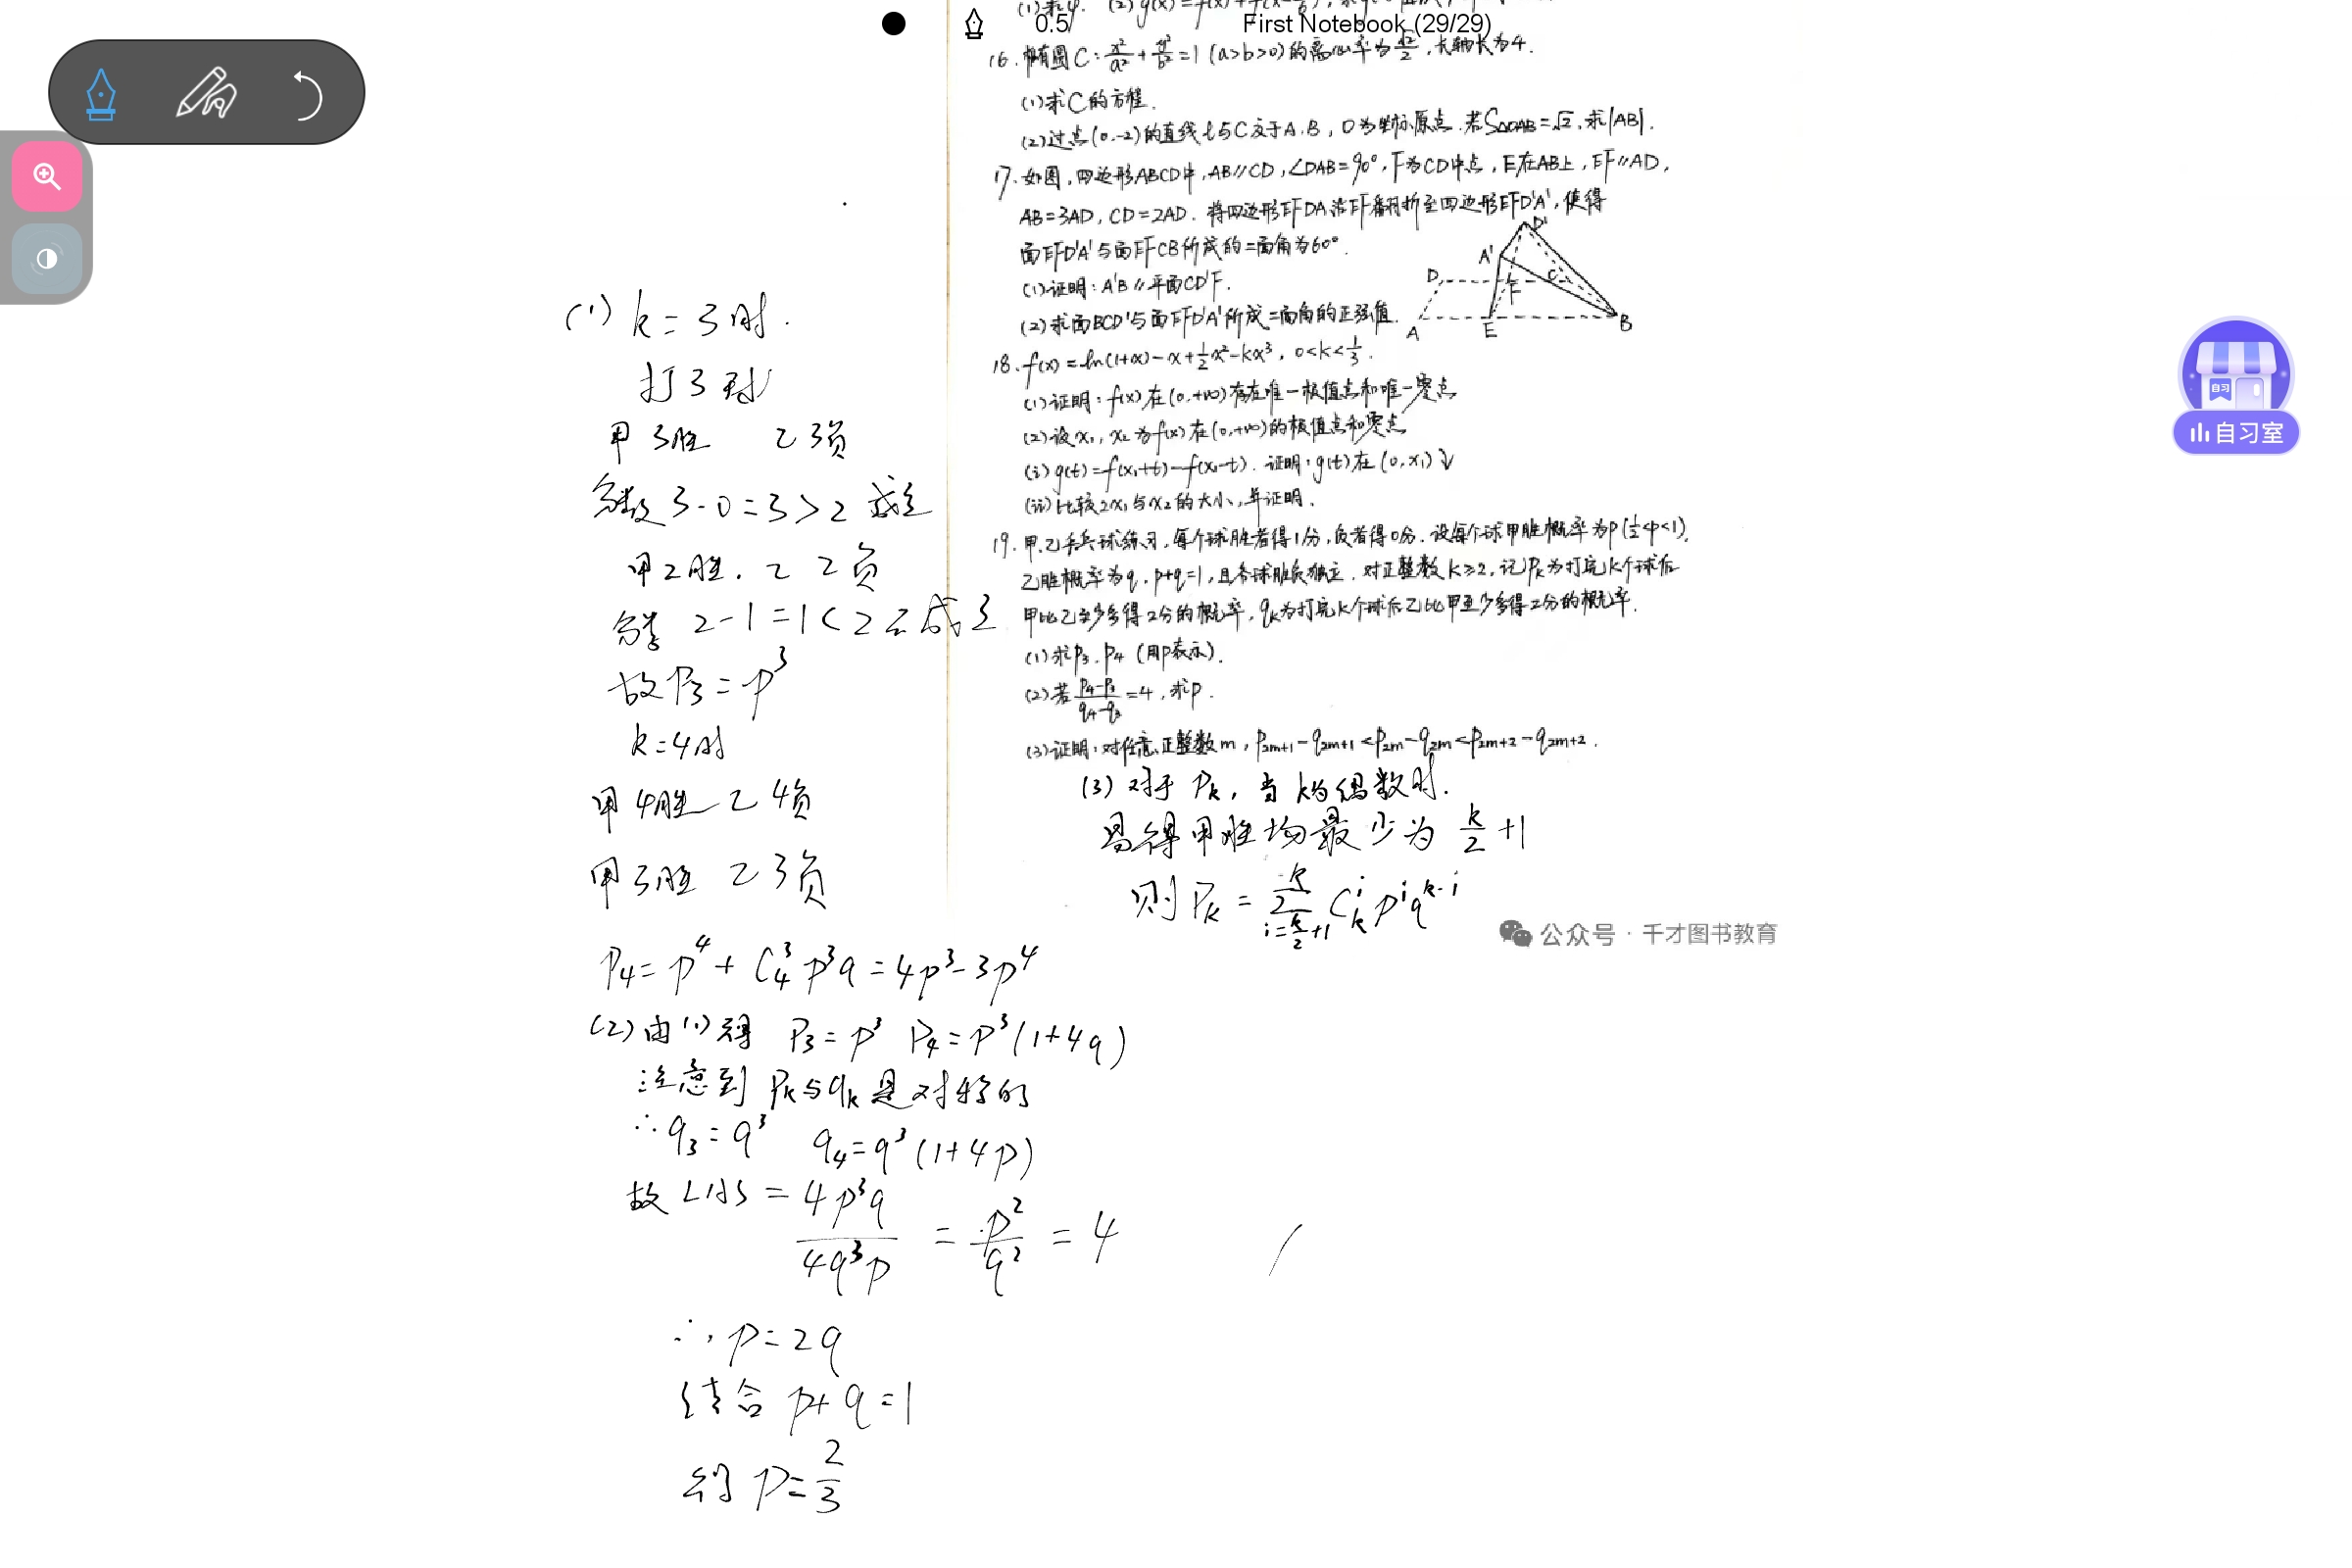 0.5 First Notebook (29/29)
16. 椭圆C: x²/a² + y²/b² = 1 (a>b>0)的离心率为√2/2, 长轴长为4.
(1)求C的方程.
(2)过点(0,-2)的直线l与C交于A.B, O为坐标原点. 若S△OAB=√2, 求|AB|.
17. 如图, 四边形ABCD中, AB//CD, ∠DAB=90°, F为CD中点, E在AB上, EF//AD,
AB=3AD, CD=2AD. 将四边形EFDA沿EF翻折至四边形EFD'A', 使得
面EFD'A'与面EFCB所成的二面角为60°.
(1)证明: A'B//平面CD'F.
(2)求面BCD'与面EFD'A'所成二面角的正弦值.
D' A' D C F A E B
18. f(x)=ln(1+x)-x+½x²-kx³, 0<k<⅓.
(1)证明: f(x)在(0,+∞)存在唯一极值点和唯一零点
(2)设x₁, x₂为f(x)在(0,+∞)的极值点和零点
(i) g(t)=f(x₁+t)-f(x₁-t). 证明: g(t)在(0,x₁)↓
(ii)比较2x₁与x₂的大小, 并证明.
19. 甲.乙乒乓球练习, 每个球胜者得1分, 负者得0分. 设每个球甲胜概率为p(½<p<1),
乙胜概率为q, p+q=1, 且各球胜负独立. 对正整数k≥2, 记Pk为打完k个球后
甲比乙至少多得2分的概率, qk为打完k个球后乙比甲至少多得2分的概率.
(1)求p₃, p₄ (用p表示).
(2)若 (p₄-p₃)/(q₄-q₃) =4, 求p.
(3)证明: 对任意正整数m, p2m+1-q2m+1<p2m-q2m<p2m+2-q2m+2.
(1) k=3时.
打3球
甲3胜 乙3负
分数3-0=3>2 成立
甲2胜. 乙2负
分数 2-1=1<2不成立
故P₃=p³
k=4时
甲4胜 乙4负
甲3胜 乙3负
P₄=p⁴+C₄³p³q=4p³-3p⁴
(2)由(1)得 P₃=p³ P₄=p³(1+4q)
注意到 Pk与qk是对称的
∴q₃=q³ q₄=q³(1+4p)
故LHS = 4p³q/4q³p = p²/q² = 4
∴p=2q
结合 p+q=1
得 p=2/3
(3) 对于Pk, 当k为偶数时.
易得甲胜场最少为 k/2+1
则Pk = Σ(i=k/2+1→k) Cₖⁱpⁱqᵏ⁻ⁱ
公众号 · 千才图书教育
自习
自习室